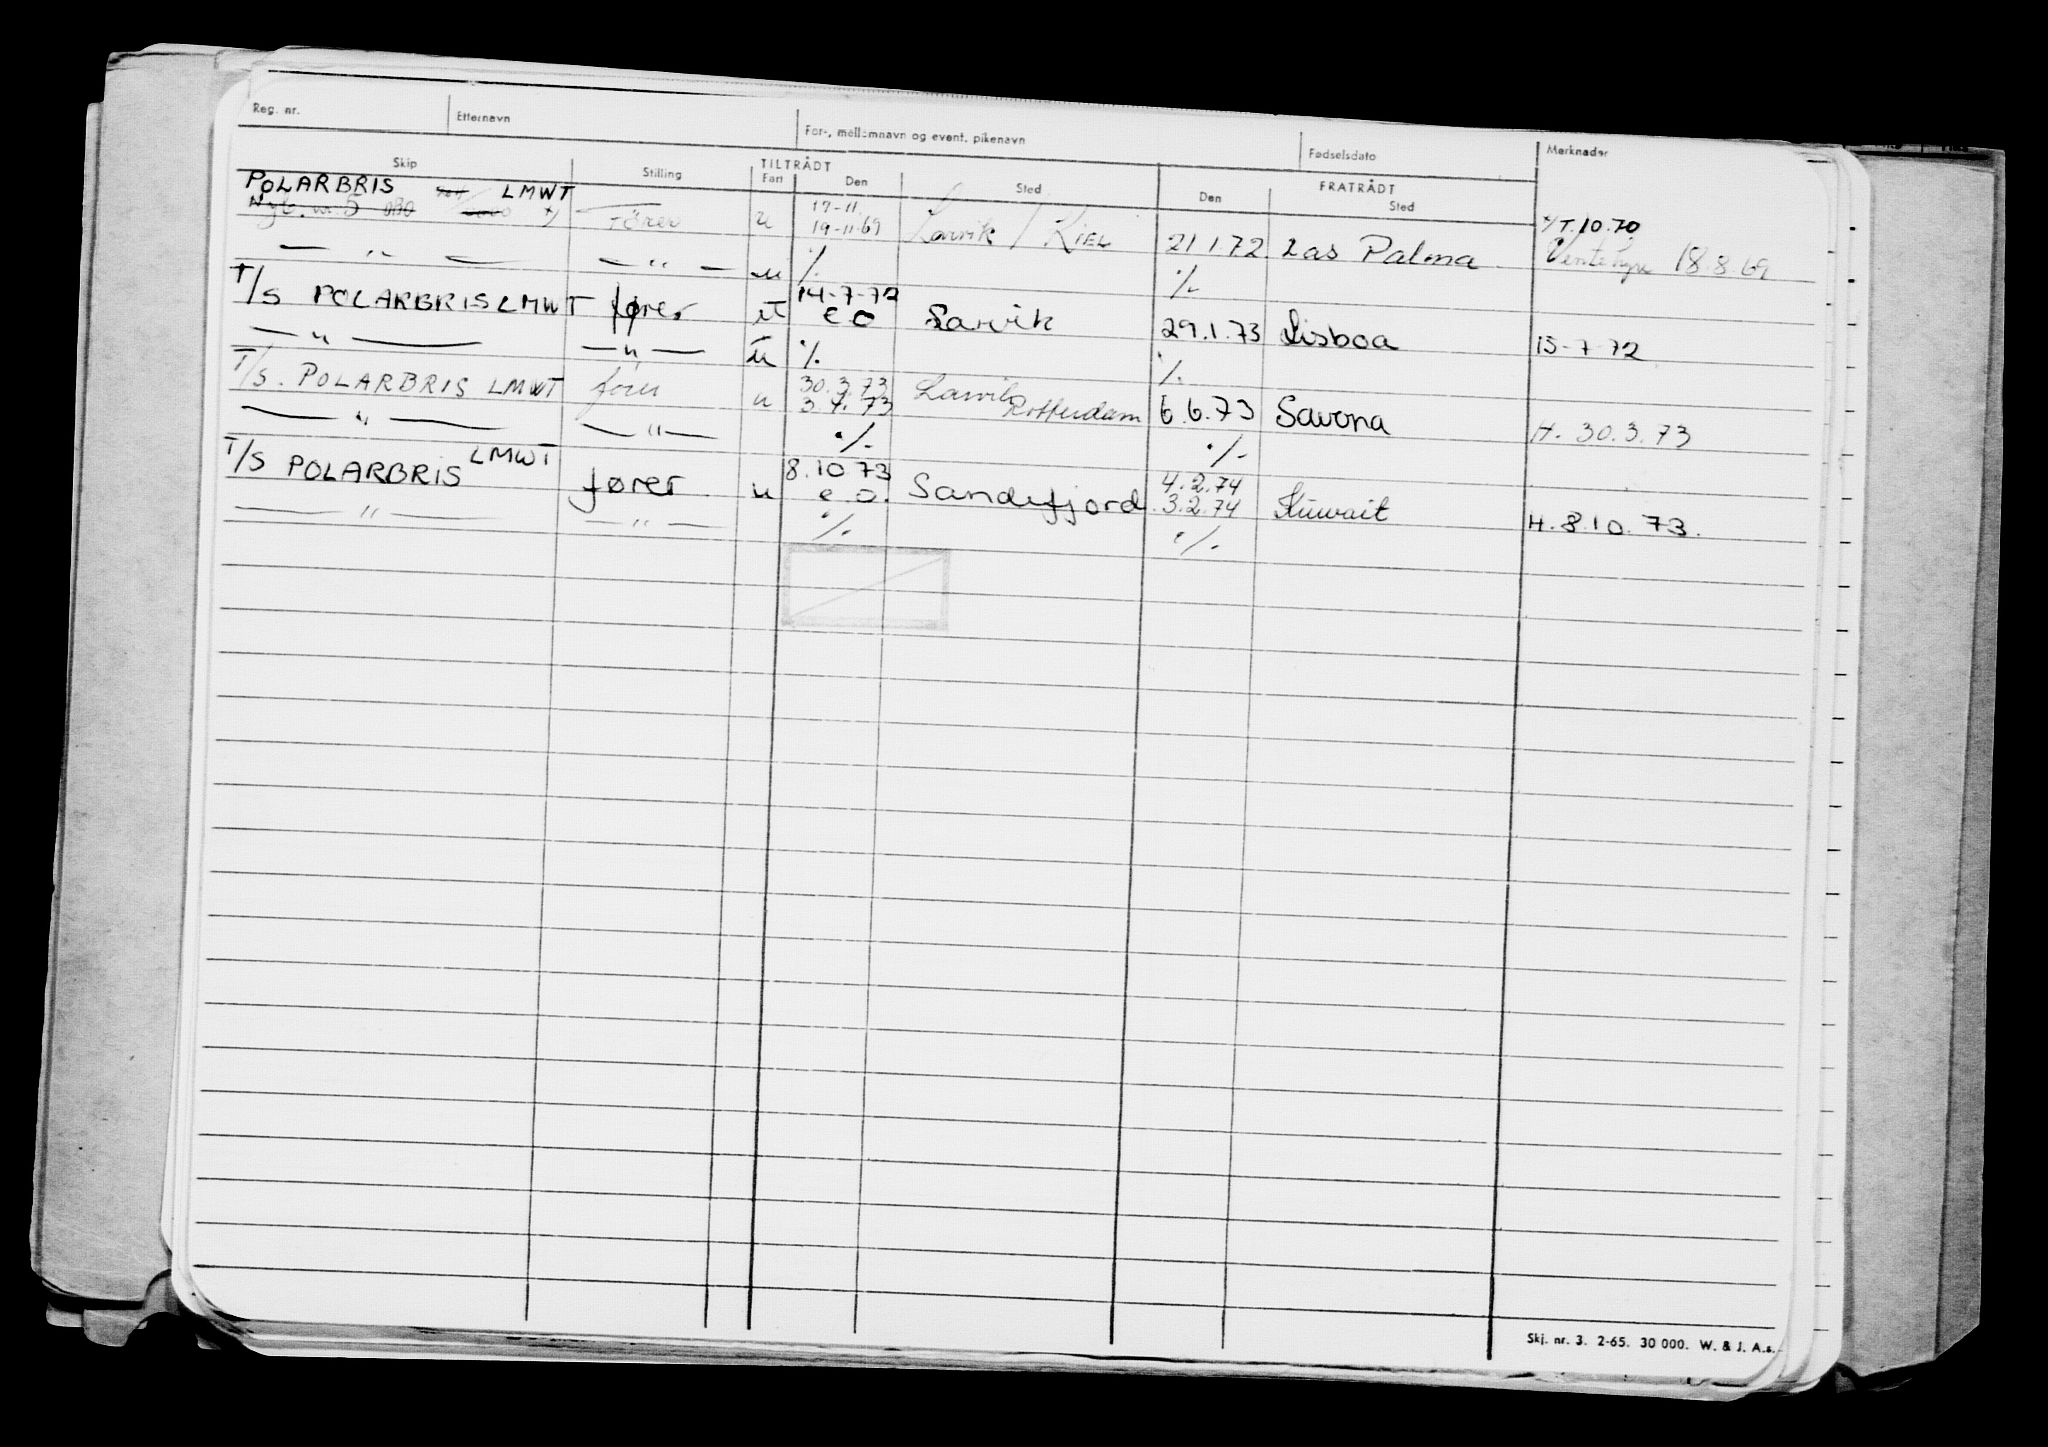 Reg. nr. Etternavn For-, mellomnavn og event. pikenavn Fødselsdato Merknader
Skip Stilling TILTRÅDT FRATRÅDT
Fart Den Sted Den Sted
POLARBRIS LMWT 17-11.
Nyb. nr. 5 OBO x) Fører u 19-11-69 Larvik / KIEL 21.1.72. Las Palma x/T.10.70
— " — — " — u ·/. ·/. Ventehyre 18.8.69
T/S POLARBRIS LMWT fører u 14-7-72 e o Larvik 29.1.73 Lisboa 15-7-72
— " — — " — u ·/. ·/.
T/S. POLARBRIS LMWT fører u 30.3.73 3.4.73 Larvik Rotterdam 6.6.73 Savona H. 30.3.73
— " — — " — ·/. ·/.
T/S POLARBRIS LMWT fører u 8.10 73 e o. Sandefjord 4.2.74 3.2.74 Kuwait H. 8.10.73.
— " — — " — ·/. ·/.
Skj. nr. 3. 2-65. 30 000. W. & J. A.s.